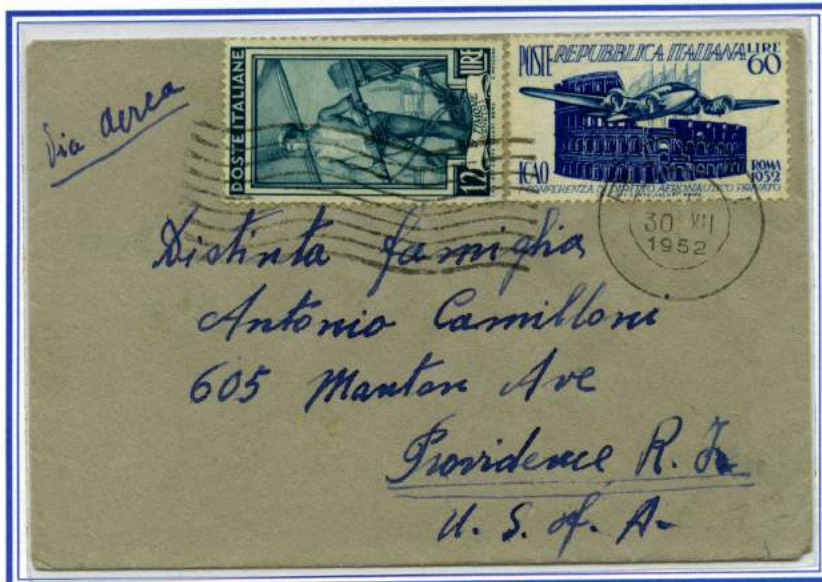 Via Aerea
POSTE ITALIANE
12
LIRE
POSTE REPUBBLICA ITALIANA LIRE
60
ICAO
ROMA
1952
I CONFERENZA DI DIRITTO AERONAUTICO PRIVATO
30 XII
1952
Distinta famiglia
Antonio Camilloni
605 Manton Ave
Providence R. I.
U. S. of. A.